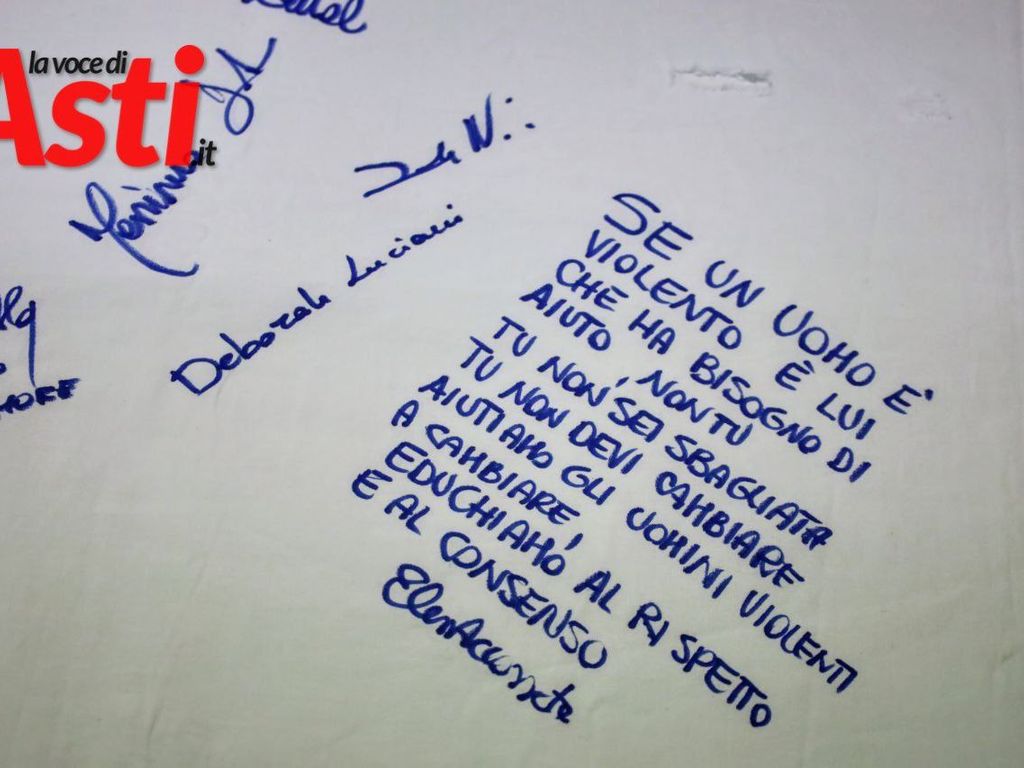 la voce di
Asti
.it
Deborah Luciani
SE UN UOMO E'
VIOLENTO È LUI
CHE HA BISOGNO DI
AIUTO NON TU
TU NON SEI SBAGLIATA
TU NON DEVI CAMBIARE
AIUTIAMO GLI UOMINI VIOLENTI
A CAMBIARE!
EDUCHIAMO AL RISPETTO
E AL CONSENSO